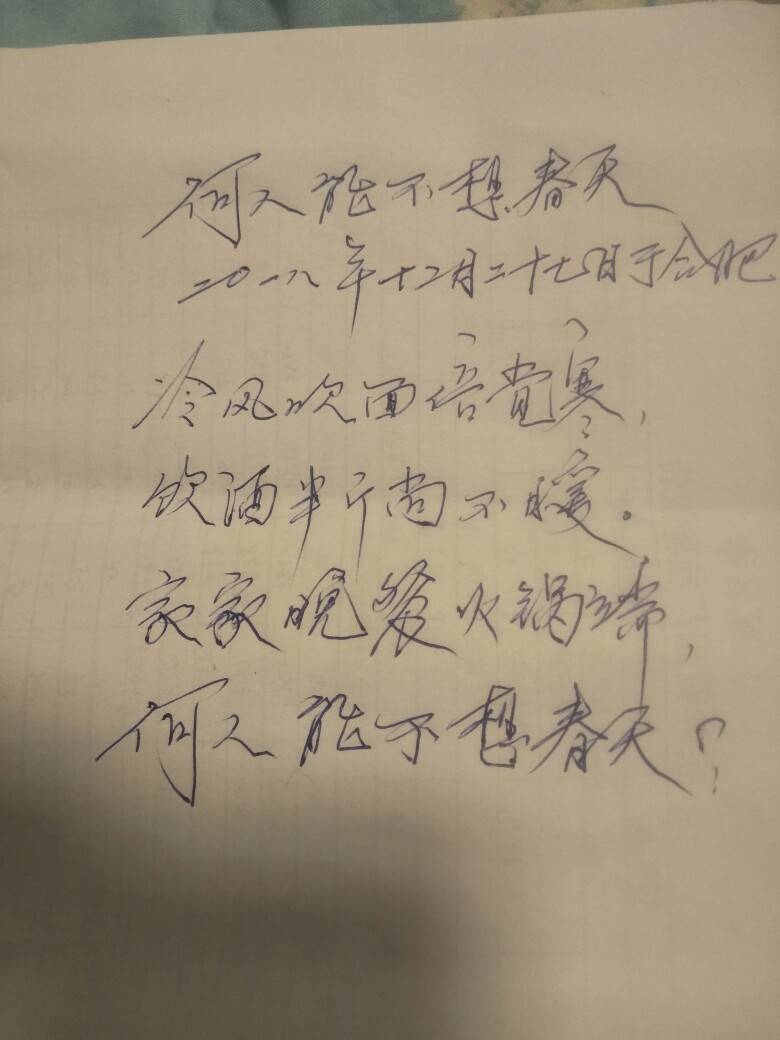 何人能不想春天
二〇一八年十二月二十七日于合肥
冷风吹面倍觉寒,
饮酒半斤尚不暖。
家家晚餐火锅端,
何人能不想春天?